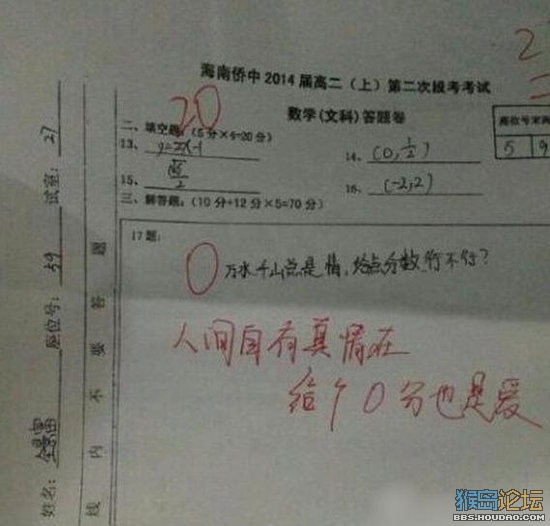 海南侨中2014届高二（上）第二次段考考试
数学(文科)答题卷
20
2
座位号末两
5 9
二、填空题:(5分×4=20分)
13、 y=2x-1
14、 (0,½)
15、 √5/2
16、 (-2,2)
三、解答题:(10分+12分×5=70分)
17题:
0
万水千山总是情,给点分数行不行?
人间自有真情在
给个0分也是爱
姓名:
座位号: 59
试室: 27
线 内 不 要 答 题
猴岛论坛
BBS.HOUDAO.COM